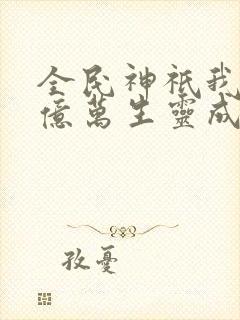 全民神祇我
億萬生靈成
孜憂